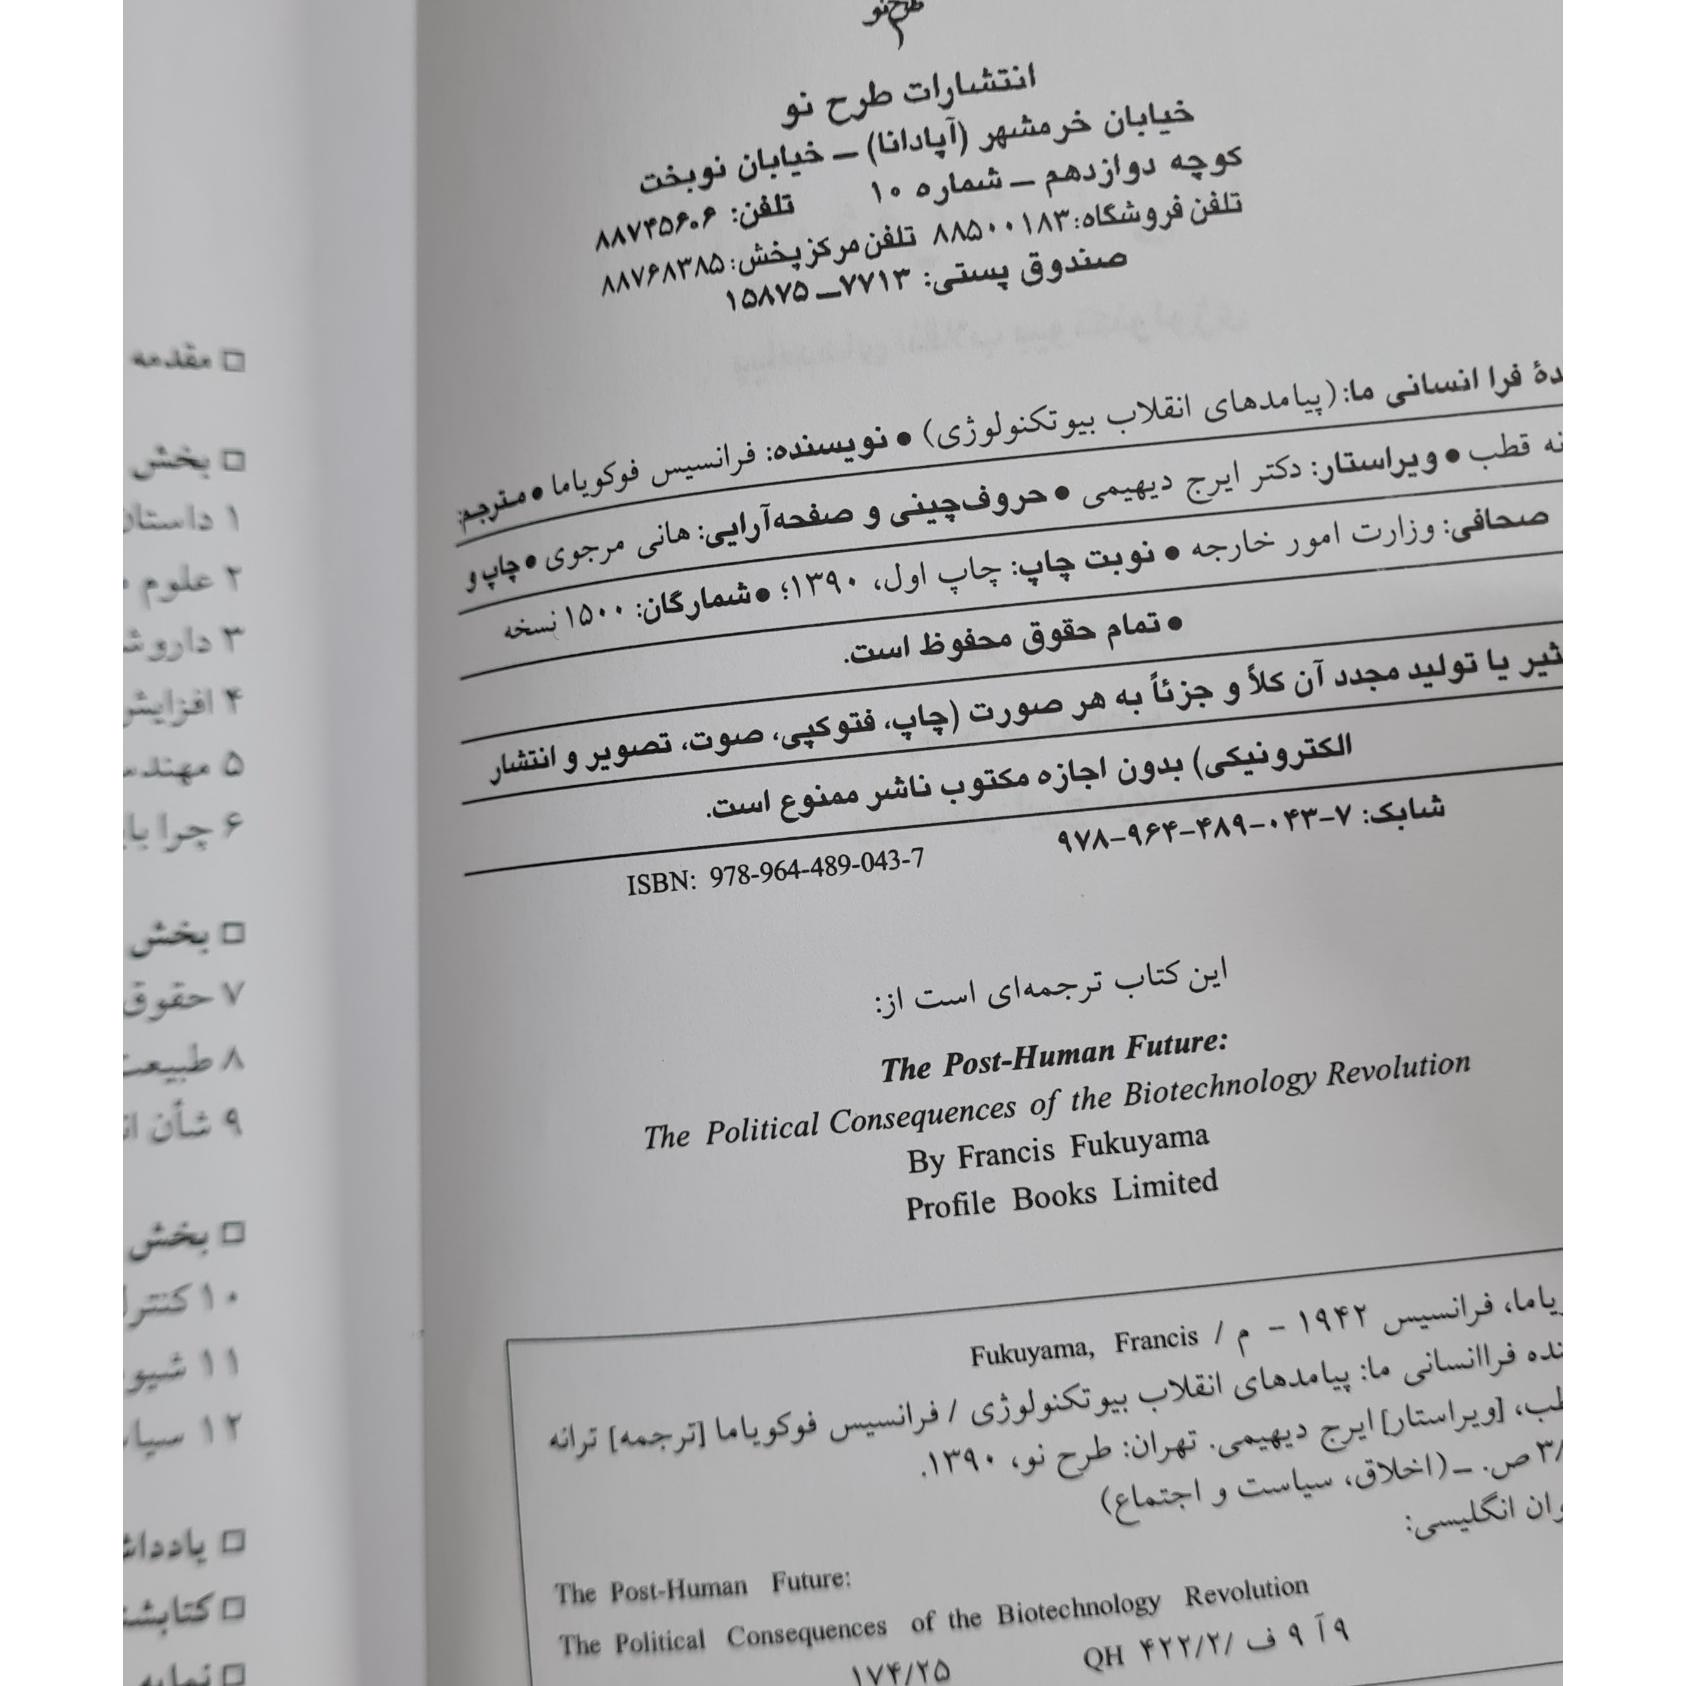 طرح نو
انتشارات طرح نو
خیابان خرمشهر (آپادانا) ـ خیابان نوبخت
کوچه دوازدهم ـ شماره ۱۰ تلفن: ۸۸۷۴۵۶۰۶
تلفن فروشگاه: ۸۸۵۰۰۱۸۳ تلفن مرکز پخش: ۸۸۷۶۸۳۸۵
صندوق پستی: ۷۷۱۳ـ۱۵۸۷۵
فرا انسانی ما: (پیامدهای انقلاب بیوتکنولوژی) ● نویسنده: فرانسیس فوکویاما ● مترجم:
قطب ● ویراستار: دکتر ایرج دیهیمی ● حروف‌چینی و صفحه‌آرایی: هانی مرجوی ● چاپ و
صحافی: وزارت امور خارجه ● نوبت چاپ: چاپ اول، ۱۳۹۰؛ ● شمارگان: ۱۵۰۰ نسخه
● تمام حقوق محفوظ است.
یا تولید مجدد آن کلاً و جزئاً به هر صورت (چاپ، فتوکپی، صوت، تصویر و انتشار
الکترونیکی) بدون اجازه مکتوب ناشر ممنوع است.
شابک: ۷-۰۴۳-۴۸۹-۹۶۴-۹۷۸
ISBN: 978-964-489-043-7
این کتاب ترجمه‌ای است از:
The Post-Human Future:
The Political Consequences of the Biotechnology Revolution
By Francis Fukuyama
Profile Books Limited
فرانسیس ۱۹۴۲ - م / Fukuyama, Francis
فراانسانی ما: پیامدهای انقلاب بیوتکنولوژی / فرانسیس فوکویاما [ترجمه] ترانه
[ویراستار] ایرج دیهیمی. تهران: طرح نو، ۱۳۹۰.
ص. ـ (اخلاق، سیاست و اجتماع)
انگلیسی:
The Post-Human Future:
The Political Consequences of the Biotechnology Revolution
۹ آ ۹ ف /۴۲۲/۲ QH
۱۷۴/۲۵
□ مقدمه
□ بخش
۱ داستان
۲ علوم
۳
۴ افزایش
۵
۶ چرا
□ بخش
۷ حقوق
۸ طبیعت
۹ شأن
□ بخش
۱۰ کنترل
۱۱
۱۲